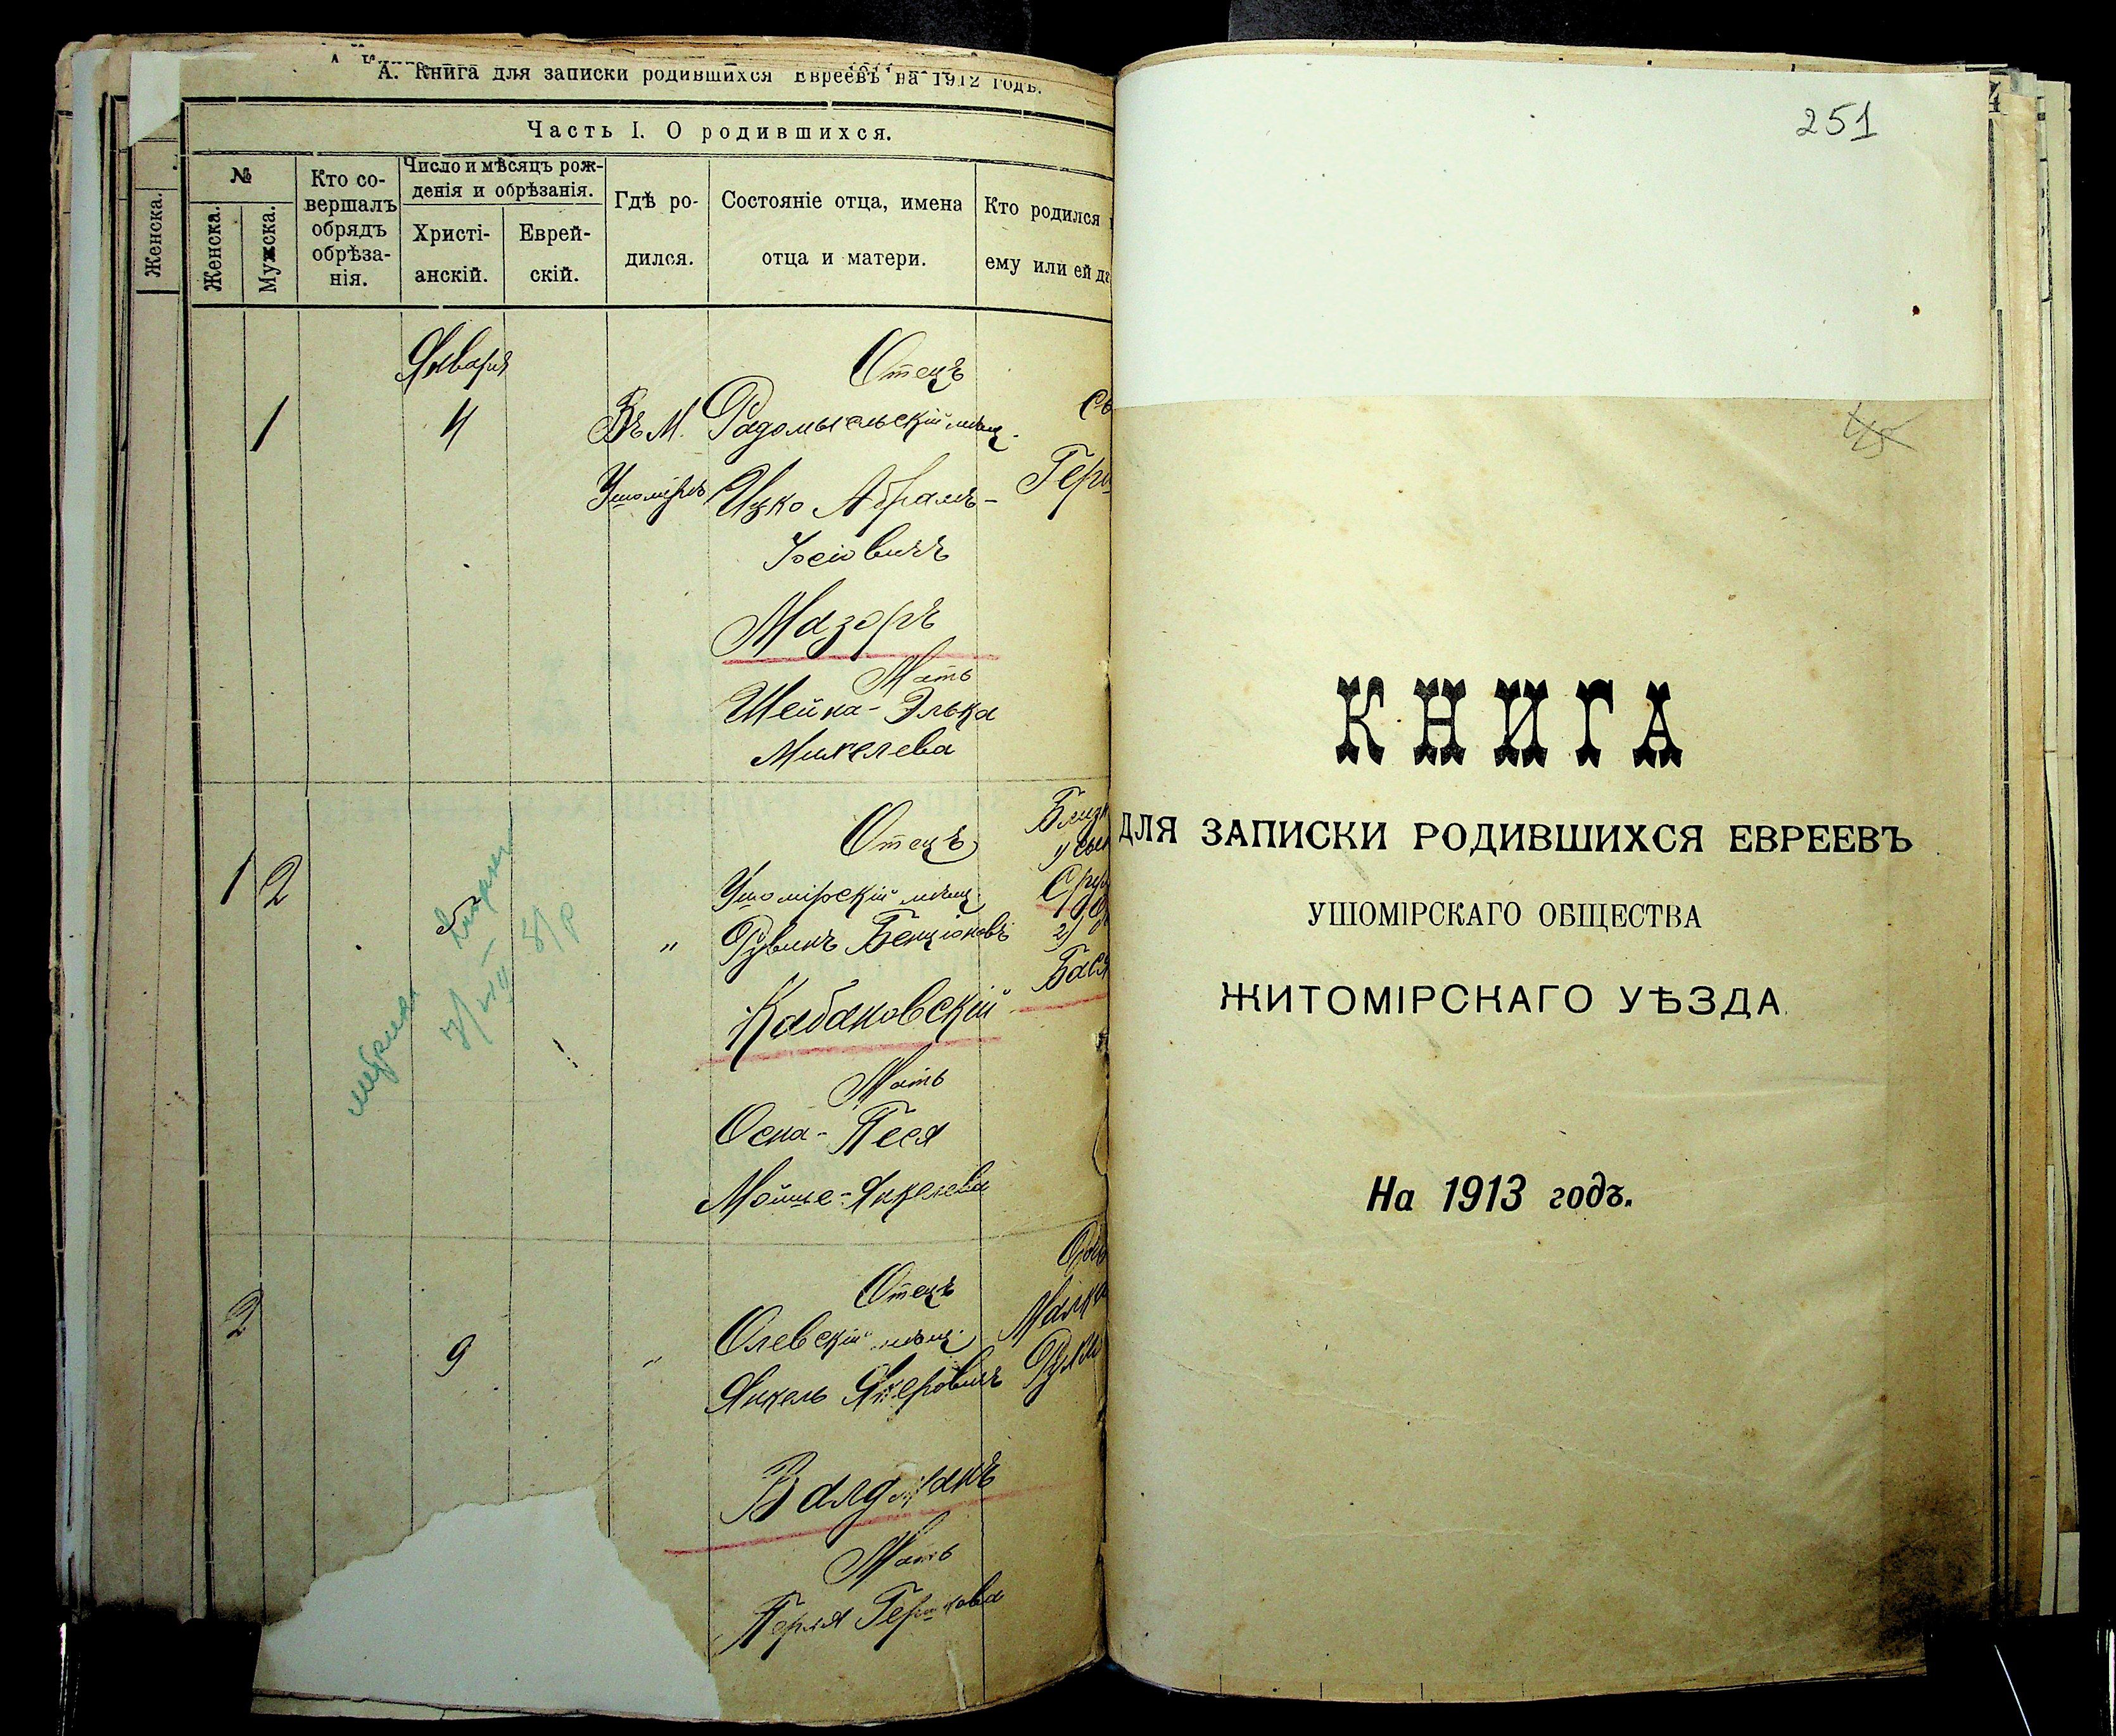 А. Книга для записки родившихся Евреевъ на 1912 годъ.
Часть I. О родившихся.
Женска.
№
Женска.
Мужска.
Кто со-
вершалъ
обрядъ
обрѣза-
нія.
Число и мѣсяцъ рож-
денія и обрѣзанія.
Христі-
анскій.
Еврей-
скій.
Гдѣ ро-
дился.
Состояніе отца, имена
отца и матери.
Кто родился
ему или ей
Января
1
4
Въ М.
Ушомірѣ
Отецъ
Радомысльскій мѣщ.
Ицко Абрамъ-
Іосіовичъ
Мазоръ
Мать
Шейна-Элька
Михелева
1 2
5
"
Отецъ
Ушомірскій мѣщ.
Рувинъ Бенціоновъ
Кабаковскій
Мать
Песя
Мойше-Янкелева
2)
2
9
"
Отецъ
Олевскій мѣщ.
Янкель
Валдманъ
Мать
Перля Гершкова
251
КНИГА
ДЛЯ ЗАПИСКИ РОДИВШИХСЯ ЕВРЕЕВЪ
УШОМІРСКАГО ОБЩЕСТВА
ЖИТОМІРСКАГО УѢЗДА.
На 1913 годъ.